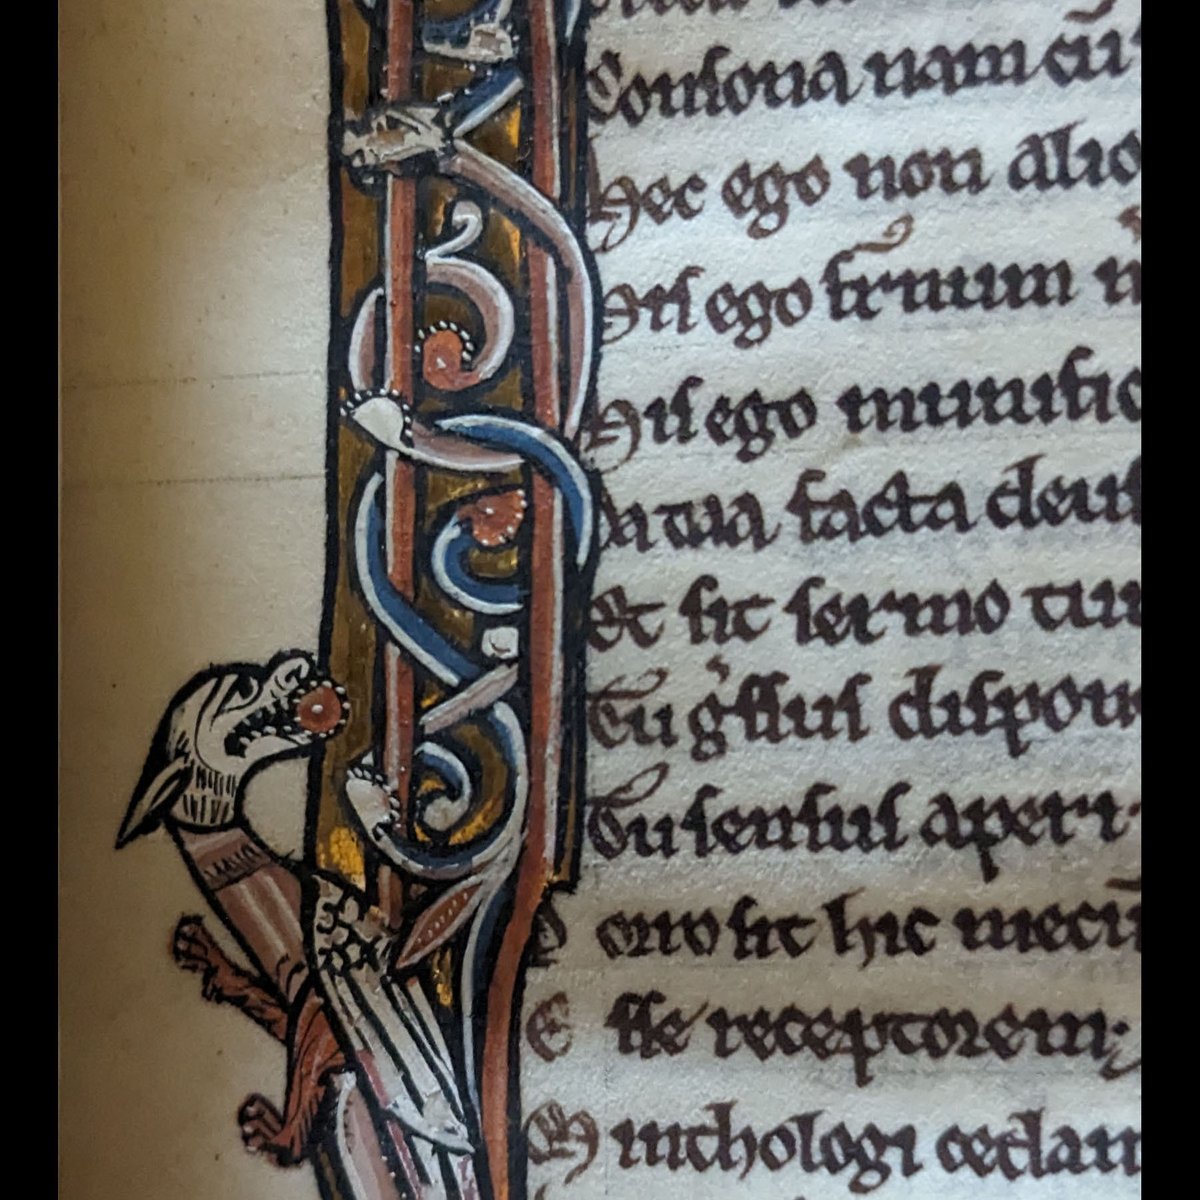 Consona nam cū
Hec ego non alio
Nil ego
Nil ego munific
Da tua facta deus
Et sit sermo tuu
Tu gͥssus dispon
Tu sensus aperi·
Porro sit hic mecū
E sse receptorem·
Minthologi cedan